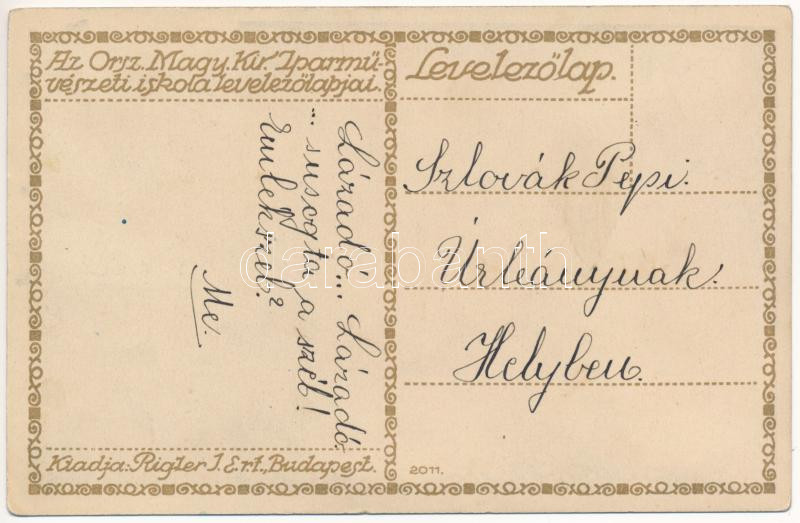 Az Orsz. Magy. Kir. Iparmű-
vészeti iskola levelezőlapjai.
Levelezőlap.
Lázadó... Lázadó
... susogta a szél!
Emlékszel?
Me.
Szlovák Pepi.
Úrleánynak.
Helyben.
Kiadja: Rigler J. E. rt., Budapest.
2011.
darabanth